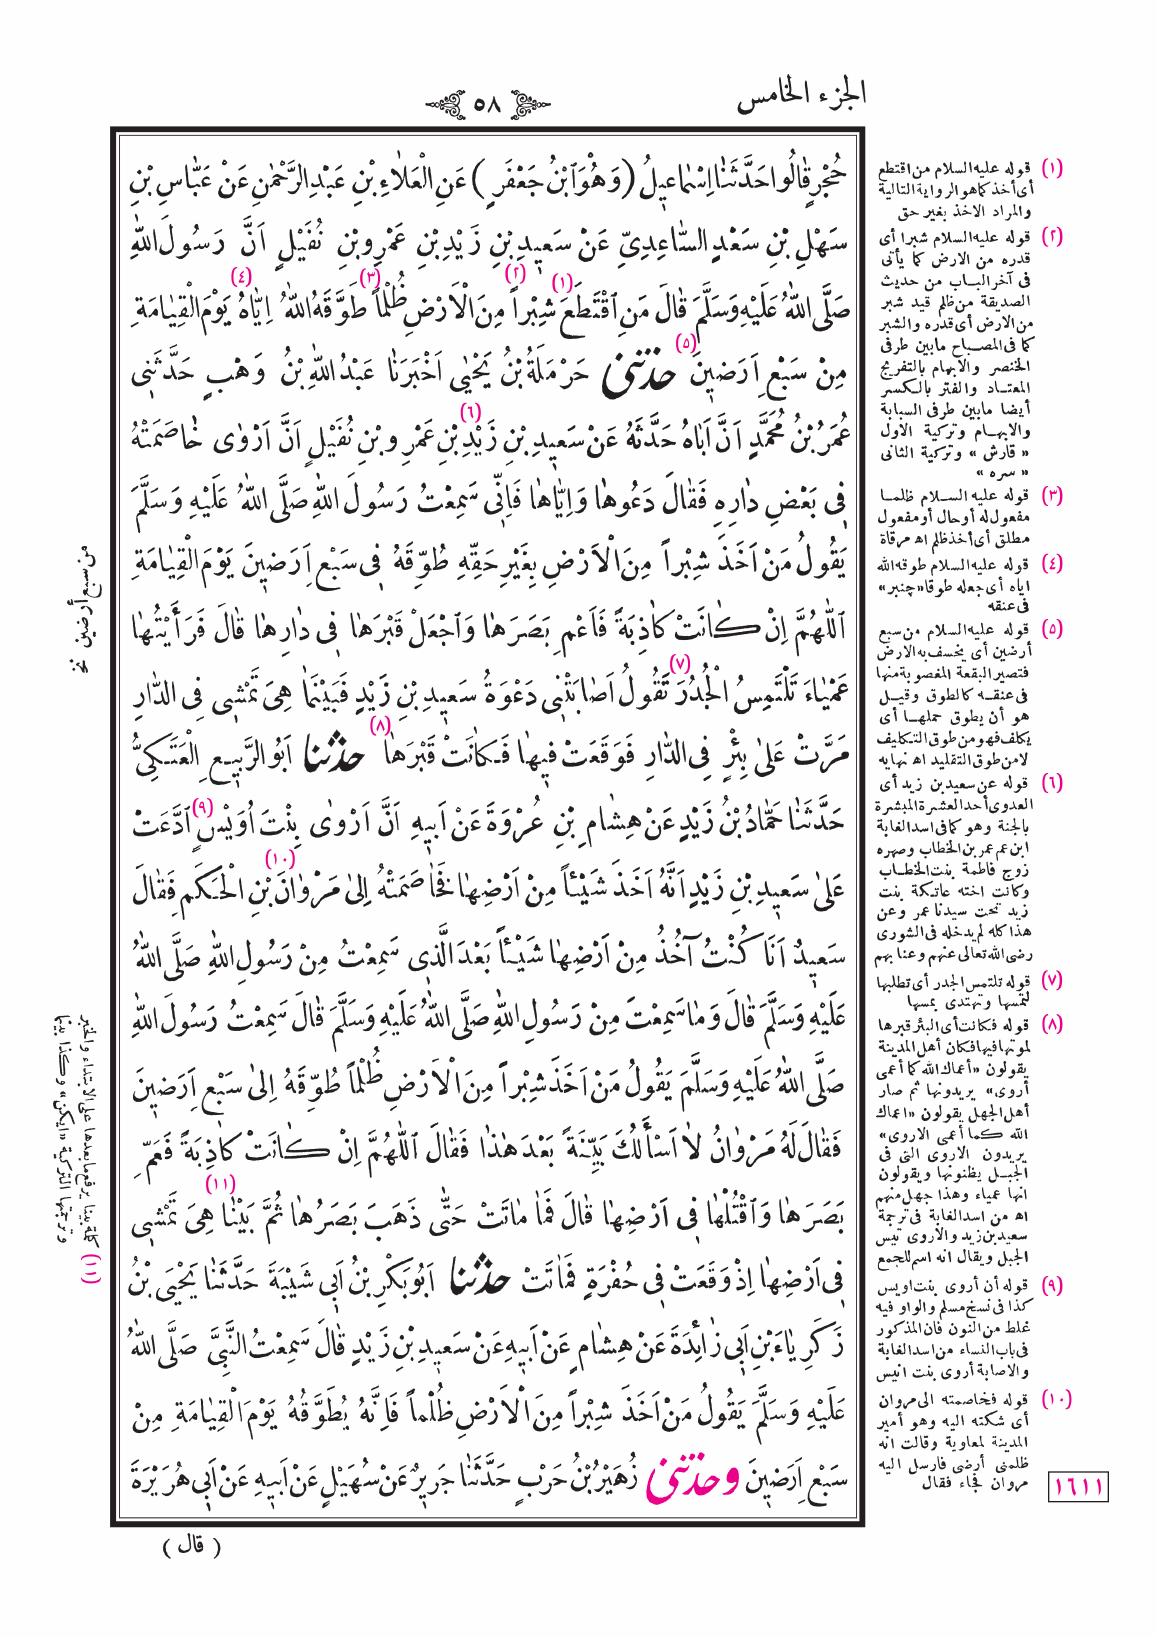 الجزء الخامس
٥٨
حُجْرٍ قَالُوا حَدَّثَنَا اِسْمَاعِيلُ (وَهُوَ ابْنُ جَعْفَرٍ) عَنِ الْعَلَاءِ بْنِ عَبْدِ الرَّحْمٰنِ عَنْ عَبَّاسِ بْنِ
سَهْلِ بْنِ سَعْدٍ السَّاعِدِيِّ عَنْ سَعِيدِ بْنِ زَيْدِ بْنِ عَمْرِو بْنِ نُفَيْلٍ اَنَّ رَسُولَ اللهِ
صَلَّى اللهُ عَلَيْهِ وَسَلَّمَ قَالَ مَنِ اقْتَطَعَ (١) شِبْراً (٢) مِنَ الْاَرْضِ ظُلْماً (٣) طَوَّقَهُ اللهُ اِيَّاهُ (٤) يَوْمَ الْقِيَامَةِ
مِنْ سَبْعِ اَرَضِينَ (٥) حدثنى حَرْمَلَةُ بْنُ يَحْيٰى اَخْبَرَنَا عَبْدُ اللهِ بْنُ وَهْبٍ حَدَّثَنِى
عُمَرُ بْنُ مُحَمَّدٍ اَنَّ اَبَاهُ حَدَّثَهُ عَنْ سَعِيدِ بْنِ زَيْدِ (٦) بْنِ عَمْرِو بْنِ نُفَيْلٍ اَنَّ اَرْوٰى خَاصَمَتْهُ
فِى بَعْضِ دَارِهِ فَقَالَ دَعُوهَا وَاِيَّاهَا فَاِنِّى سَمِعْتُ رَسُولَ اللهِ صَلَّى اللهُ عَلَيْهِ وَسَلَّمَ
يَقُولُ مَنْ اَخَذَ شِبْراً مِنَ الْاَرْضِ بِغَيْرِ حَقِّهِ طُوِّقَهُ فِى سَبْعِ اَرَضِينَ يَوْمَ الْقِيَامَةِ
اَللّٰهُمَّ اِنْ كَانَتْ كَاذِبَةً فَاَعْمِ بَصَرَهَا وَاجْعَلْ قَبْرَهَا فِى دَارِهَا قَالَ فَرَأَيْتُهَا
عَمْيَاءَ تَلْتَمِسُ الْجُدُرَ (٧) تَقُولُ اَصَابَتْنِى دَعْوَةُ سَعِيدِ بْنِ زَيْدٍ فَبَيْنَمَا هِىَ تَمْشِى فِى الدَّارِ
مَرَّتْ عَلٰى بِئْرٍ فِى الدَّارِ فَوَقَعَتْ فِيهَا فَكَانَتْ قَبْرَهَا (٨) حدثنا اَبُو الرَّبِيعِ الْعَتَكِىُّ
حَدَّثَنَا حَمَّادُ بْنُ زَيْدٍ عَنْ هِشَامِ بْنِ عُرْوَةَ عَنْ اَبِيهِ اَنَّ اَرْوٰى بِنْتَ اُوَيْسٍ (٩) ادَّعَتْ
عَلٰى سَعِيدِ بْنِ زَيْدٍ اَنَّهُ اَخَذَ شَيْئاً مِنْ اَرْضِهَا فَخَاصَمَتْهُ (١٠) اِلٰى مَرْوَانَ بْنِ الْحَكَمِ فَقَالَ
سَعِيدٌ اَنَا كُنْتُ آخُذُ مِنْ اَرْضِهَا شَيْئاً بَعْدَ الَّذِى سَمِعْتُ مِنْ رَسُولِ اللهِ صَلَّى اللهُ
عَلَيْهِ وَسَلَّمَ قَالَ وَمَا سَمِعْتَ مِنْ رَسُولِ اللهِ صَلَّى اللهُ عَلَيْهِ وَسَلَّمَ قَالَ سَمِعْتُ رَسُولَ اللهِ
صَلَّى اللهُ عَلَيْهِ وَسَلَّمَ يَقُولُ مَنْ اَخَذَ شِبْراً مِنَ الْاَرْضِ ظُلْماً طُوِّقَهُ اِلٰى سَبْعِ اَرَضِينَ
فَقَالَ لَهُ مَرْوَانُ لَا اَسْأَلُكَ بَيِّنَةً بَعْدَ هٰذَا فَقَالَ اَللّٰهُمَّ اِنْ كَانَتْ كَاذِبَةً فَعَمِّ
بَصَرَهَا وَاقْتُلْهَا فِى اَرْضِهَا قَالَ فَمَا مَاتَتْ حَتّٰى ذَهَبَ بَصَرُهَا ثُمَّ بَيْنَا (١١) هِىَ تَمْشِى
فِى اَرْضِهَا اِذْ وَقَعَتْ فِى حُفْرَةٍ فَمَاتَتْ حدثنا اَبُو بَكْرِ بْنُ اَبِى شَيْبَةَ حَدَّثَنَا يَحْيَى بْنُ
زَكَرِيَّاءَ بْنِ اَبِى زَائِدَةَ عَنْ هِشَامٍ عَنْ اَبِيهِ عَنْ سَعِيدِ بْنِ زَيْدٍ قَالَ سَمِعْتُ النَّبِىَّ صَلَّى اللهُ
عَلَيْهِ وَسَلَّمَ يَقُولُ مَنْ اَخَذَ شِبْراً مِنَ الْاَرْضِ ظُلْماً فَاِنَّهُ يُطَوَّقُهُ يَوْمَ الْقِيَامَةِ مِنْ
سَبْعِ اَرَضِينَ وحدثنى زُهَيْرُ بْنُ حَرْبٍ حَدَّثَنَا جَرِيرٌ عَنْ سُهَيْلٍ عَنْ اَبِيهِ عَنْ اَبِى هُرَيْرَةَ
( قال )
(١) قوله عليه السلام من اقتطع
أى أخذ كما هو الرواية التالية
والمراد الاخذ بغير حق
(٢) قوله عليه السلام شبرا أى
قدره من الارض كما يأتى
فى آخر الباب من حديث
الصديقة من ظلم قيد شبر
من الارض أى قدره والشبر
كما فى المصباح مابين طرفى
الخنصر والابهام بالتفريج
المعتاد والفتر بالكسر
أيضا مابين طرفى السبابة
والابهام وتركية الاول
« قارش » وتركية الثانى
« سره »
(٣) قوله عليه السلام ظلما
مفعول له أو حال أو مفعول
مطلق أى أخذ ظلم اه مرقاة
(٤) قوله عليه السلام طوقه الله
اياه أى جعله طوقا «چنبر»
فى عنقه
(٥) قوله عليه السلام من سبع
أرضين أى يخسف به الارض
فتصير البقعة المغصوبة منها
فى عنقه كالطوق وقيل
هو أن يطوق حملها أى
يكلف فهو من طوق التكليف
لا من طوق التقليد اه نهايه
(٦) قوله عن سعيد بن زيد أى
العدوى أحد العشرة المبشرة
بالجنة وهو كما فى اسد الغابة
ابن عم عمر بن الخطاب وصهره
زوج فاطمة بنت الخطاب
وكانت اخته عاتكة بنت
زيد تحت سيدنا عمر وعن
هذا كله لم يدخله فى الشورى
رضى الله تعالى عنهم وعنا بهم
(٧) قوله تلتمس الجدر أى تطلبها
لتمسها وتهتدى بمسها
(٨) قوله فكانت أى البئر قبرها
لموتها فيها فكان أهل المدينة
يقولون «أعماك الله كما أعمى
أروى» يريدونها ثم صار
أهل الجهل يقولون «اعماك
الله كما أعمى الاروى»
يريدون الاروى التى فى
الجبل يظنونها ويقولون
انها عمياء وهذا جهل منهم
اه من اسد الغابة فى ترجمة
سعيد بن زيد والأروى تيس
الجبل ويقال انه اسم للجمع
(٩) قوله أن أروى بنت اويس
كذا فى نسخ مسلم والواو فيه
غلط من النون فان المذكور
فى باب النساء من اسد الغابة
والاصابة أروى بنت انيس
(١٠) قوله فخاصمته الى مروان
أى شكته اليه وهو أمير
المدينة لمعاوية وقالت انه
ظلمنى أرضى فارسل اليه
مروان فجاء فقال
١٦١١
من سبع أرضين نخ
(١١) كلمة بينا يرفع ما بعدها على الابتداء والخبر
وترجمتها التركية «ايكن» وكذا بينما